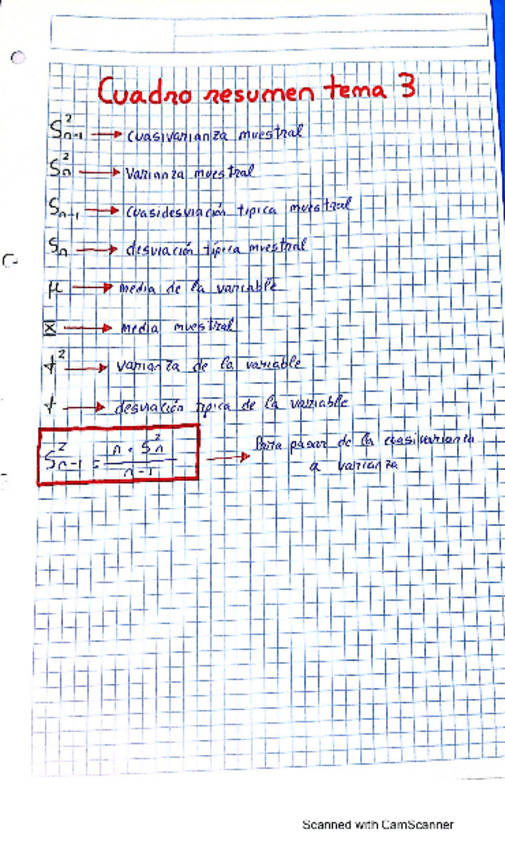 Cuadro resumen tema 3
S²n-1 → cuasivarianza muestral
S²n → varianza muestral
Sn-1 → cuasidesviación típica muestral
Sn → desviación típica muestral
μ → media de la variable
x̄ → media muestral
σ² → varianza de la variable
σ → desviación típica de la variable
S²n-1 = n · S²n / n-1 → Para pasar de la cuasivarianza
a varianza
Scanned with CamScanner